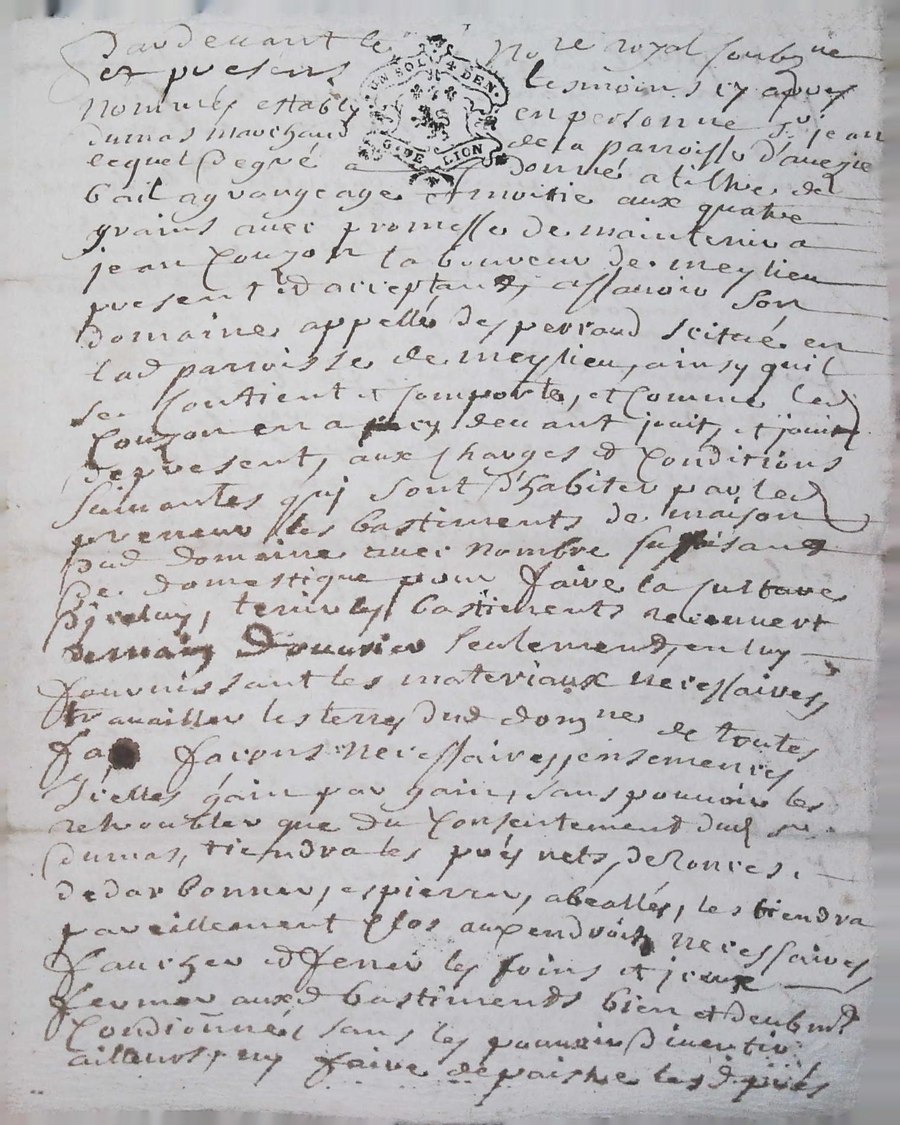 Pardevant le no.re royal soubz.ne
et presens UN SOL 4 DEN. tesmoins cy apres
nommés estably en personne Sr jean
dumas marchand G. DE LION de la parroisse d'
lequel de gré a donné a tiltre de
bail a grangeage et moitie aux quatre
grains avec promesse de maintenir a
jean Couzon laboureur de meylieu
present et acceptant, assavoir son
domaine appellé des perraud scitué en
lad parroisse de meylieu, ainsy quil
se contient et comporte, et comme led
Couzon en a cy devant jouit, et jouit
de present, aux charges et conditions
suivantes qui sont d'habiter par led
preneur les bastiments de maison
dud domaine avec nombre suffisant
de domestique pour faire la culture
d'iceluy, tenir les bastiments recouvert
de main Douvrier seulement, en luy
fournissant les materiaux necessaires
travailler les terres dud dom.ne de toutes
façons necessaires, ensemences
d'icelles gain par gain, sans pouvoir les
retroubler que du consentement dud sr
dumas, tiendra les prés nets, de ronces,
de darbonner, espierrer, abealler, les tiendra
pareillement clos aux endroits necessaires
faucher et fener les foins et iceux
fermer auxd bastiments bien et deubm.t
conditionnés sans les pouvoir divertir
ailleurs, ny faire depaistre lesd prés